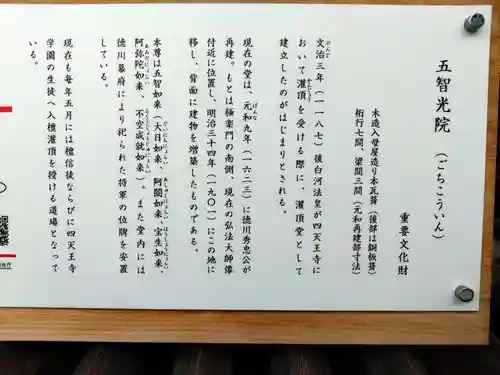 五智光院（ごちこういん）
重要文化財
木造入母屋造り本瓦葺（後部は銅板葺）
桁行七間、梁間三間（元和再建部寸法）
文治三年（一一八七）後白河法皇が四天王寺に
おいて灌頂を受ける際に、灌頂堂として
建立したのがはじまりとされる。
現在の堂は、元和九年（一六二三）に徳川秀忠公が
再建。もとは極楽門の南側、現在の弘法大師像
付近に位置し、明治三十四年（一九〇一）にこの地に
移し、背面に建物を増築したものである。
本尊は五智如来（大日如来、阿閦如来、宝生如来、
阿弥陀如来、不空成就如来）。また堂内には
徳川幕府により祀られた将軍の位牌を安置
している。
現在も毎年五月には檀信徒ならびに四天王寺
学園の生徒へ入檀灌頂を授ける道場となって
いる。